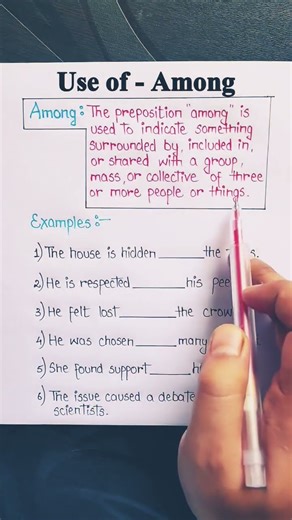 Use of - Among
Among: The preposition "among" is
used to indicate something
surrounded by, included in,
or shared with a group,
mass, or collective of three
or more people or things.
Examples:-
1) The house is hidden ______ the
2) He is respected ______ his
3) He felt lost ______ the
4) He was chosen ______ many
5) She found support ______
6) The issue caused a debate
scientists.